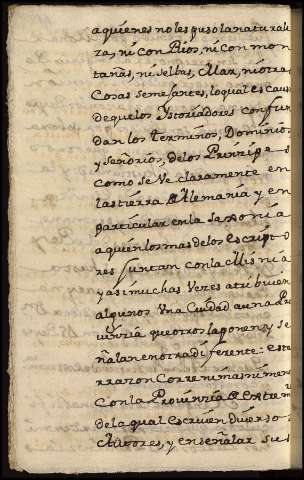 aquienes no les puso la naturale
za, ni con Rios, ni con mon
tañas, ni selbas, Mar, ni otra
Cosas semejantes, lo qual es caus
de que los Ystoriadores confun
dan los terminos, Dominios
y señorios, de los Prinzipe
como se Ve claramente en
las tierra de Alemania y en
particular en la Saxonia
a quien los mas de los escript
res juntan con la Misnia
y asi muchas Vezes atribuien
algunos Una Ciudad a una Pro
vinzia que otros la ponen, y se
ñalan en otra diferente: esta
rrazon Corre ni mas ni meno
Con la Provinzia de extrem
de la qual escriven diverso
Autores, y en señalar su